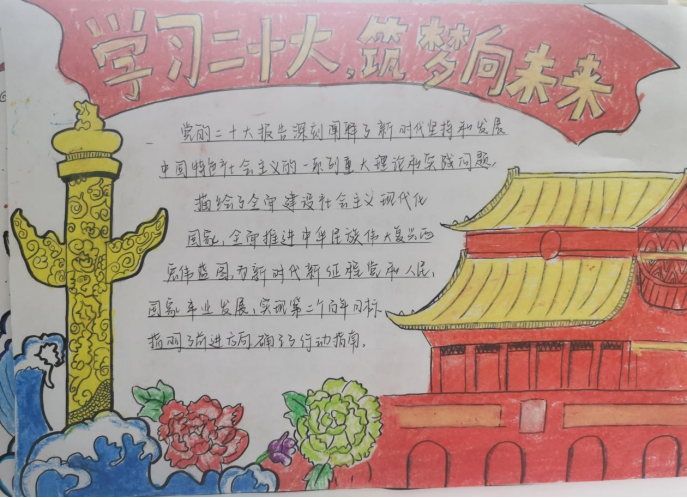 学习二十大,筑梦向未来
党的二十大报告深刻阐释了新时代坚持和发展
中国特色社会主义的一系列重大理论和实践问题,
描绘了全面建设社会主义现代化
国家、全面推进中华民族伟大复兴的
宏伟蓝图,为新时代新征程党和人民,
国家事业发展、实现第二个百年目标,
指明了前进方向确立了行动指南。